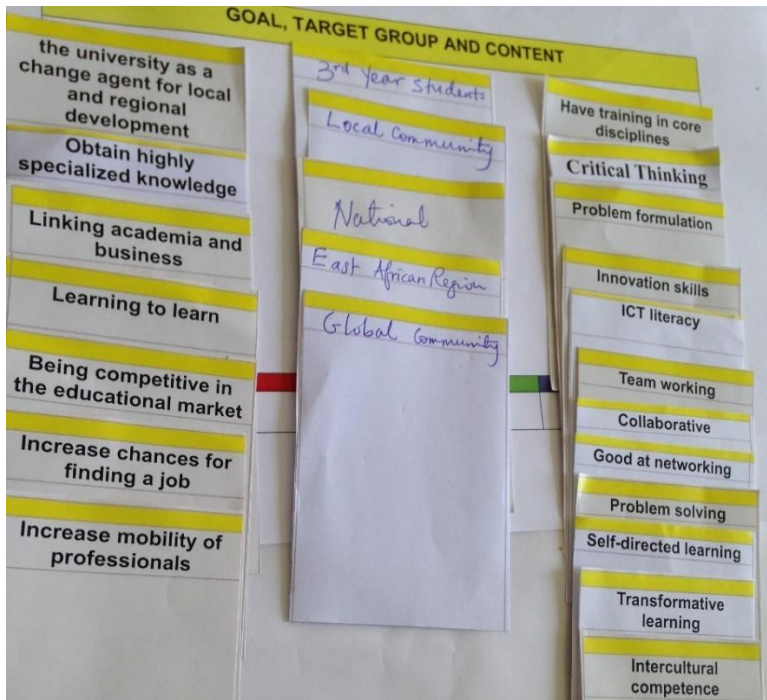 GOAL, TARGET GROUP AND CONTENT
the university as a
change agent for local
and regional
development
Obtain highly
specialized knowledge
Linking academia and
business
Learning to learn
Being competitive in
the educational market
Increase chances for
finding a job
Increase mobility of
professionals
3rd Year Students
Local Community
National
East African Region
Global Community
Have training in core
disciplines
Critical Thinking
Problem formulation
Innovation skills
ICT literacy
Team working
Collaborative
Good at networking
Problem solving
Self-directed learning
Transformative
learning
Intercultural
competence